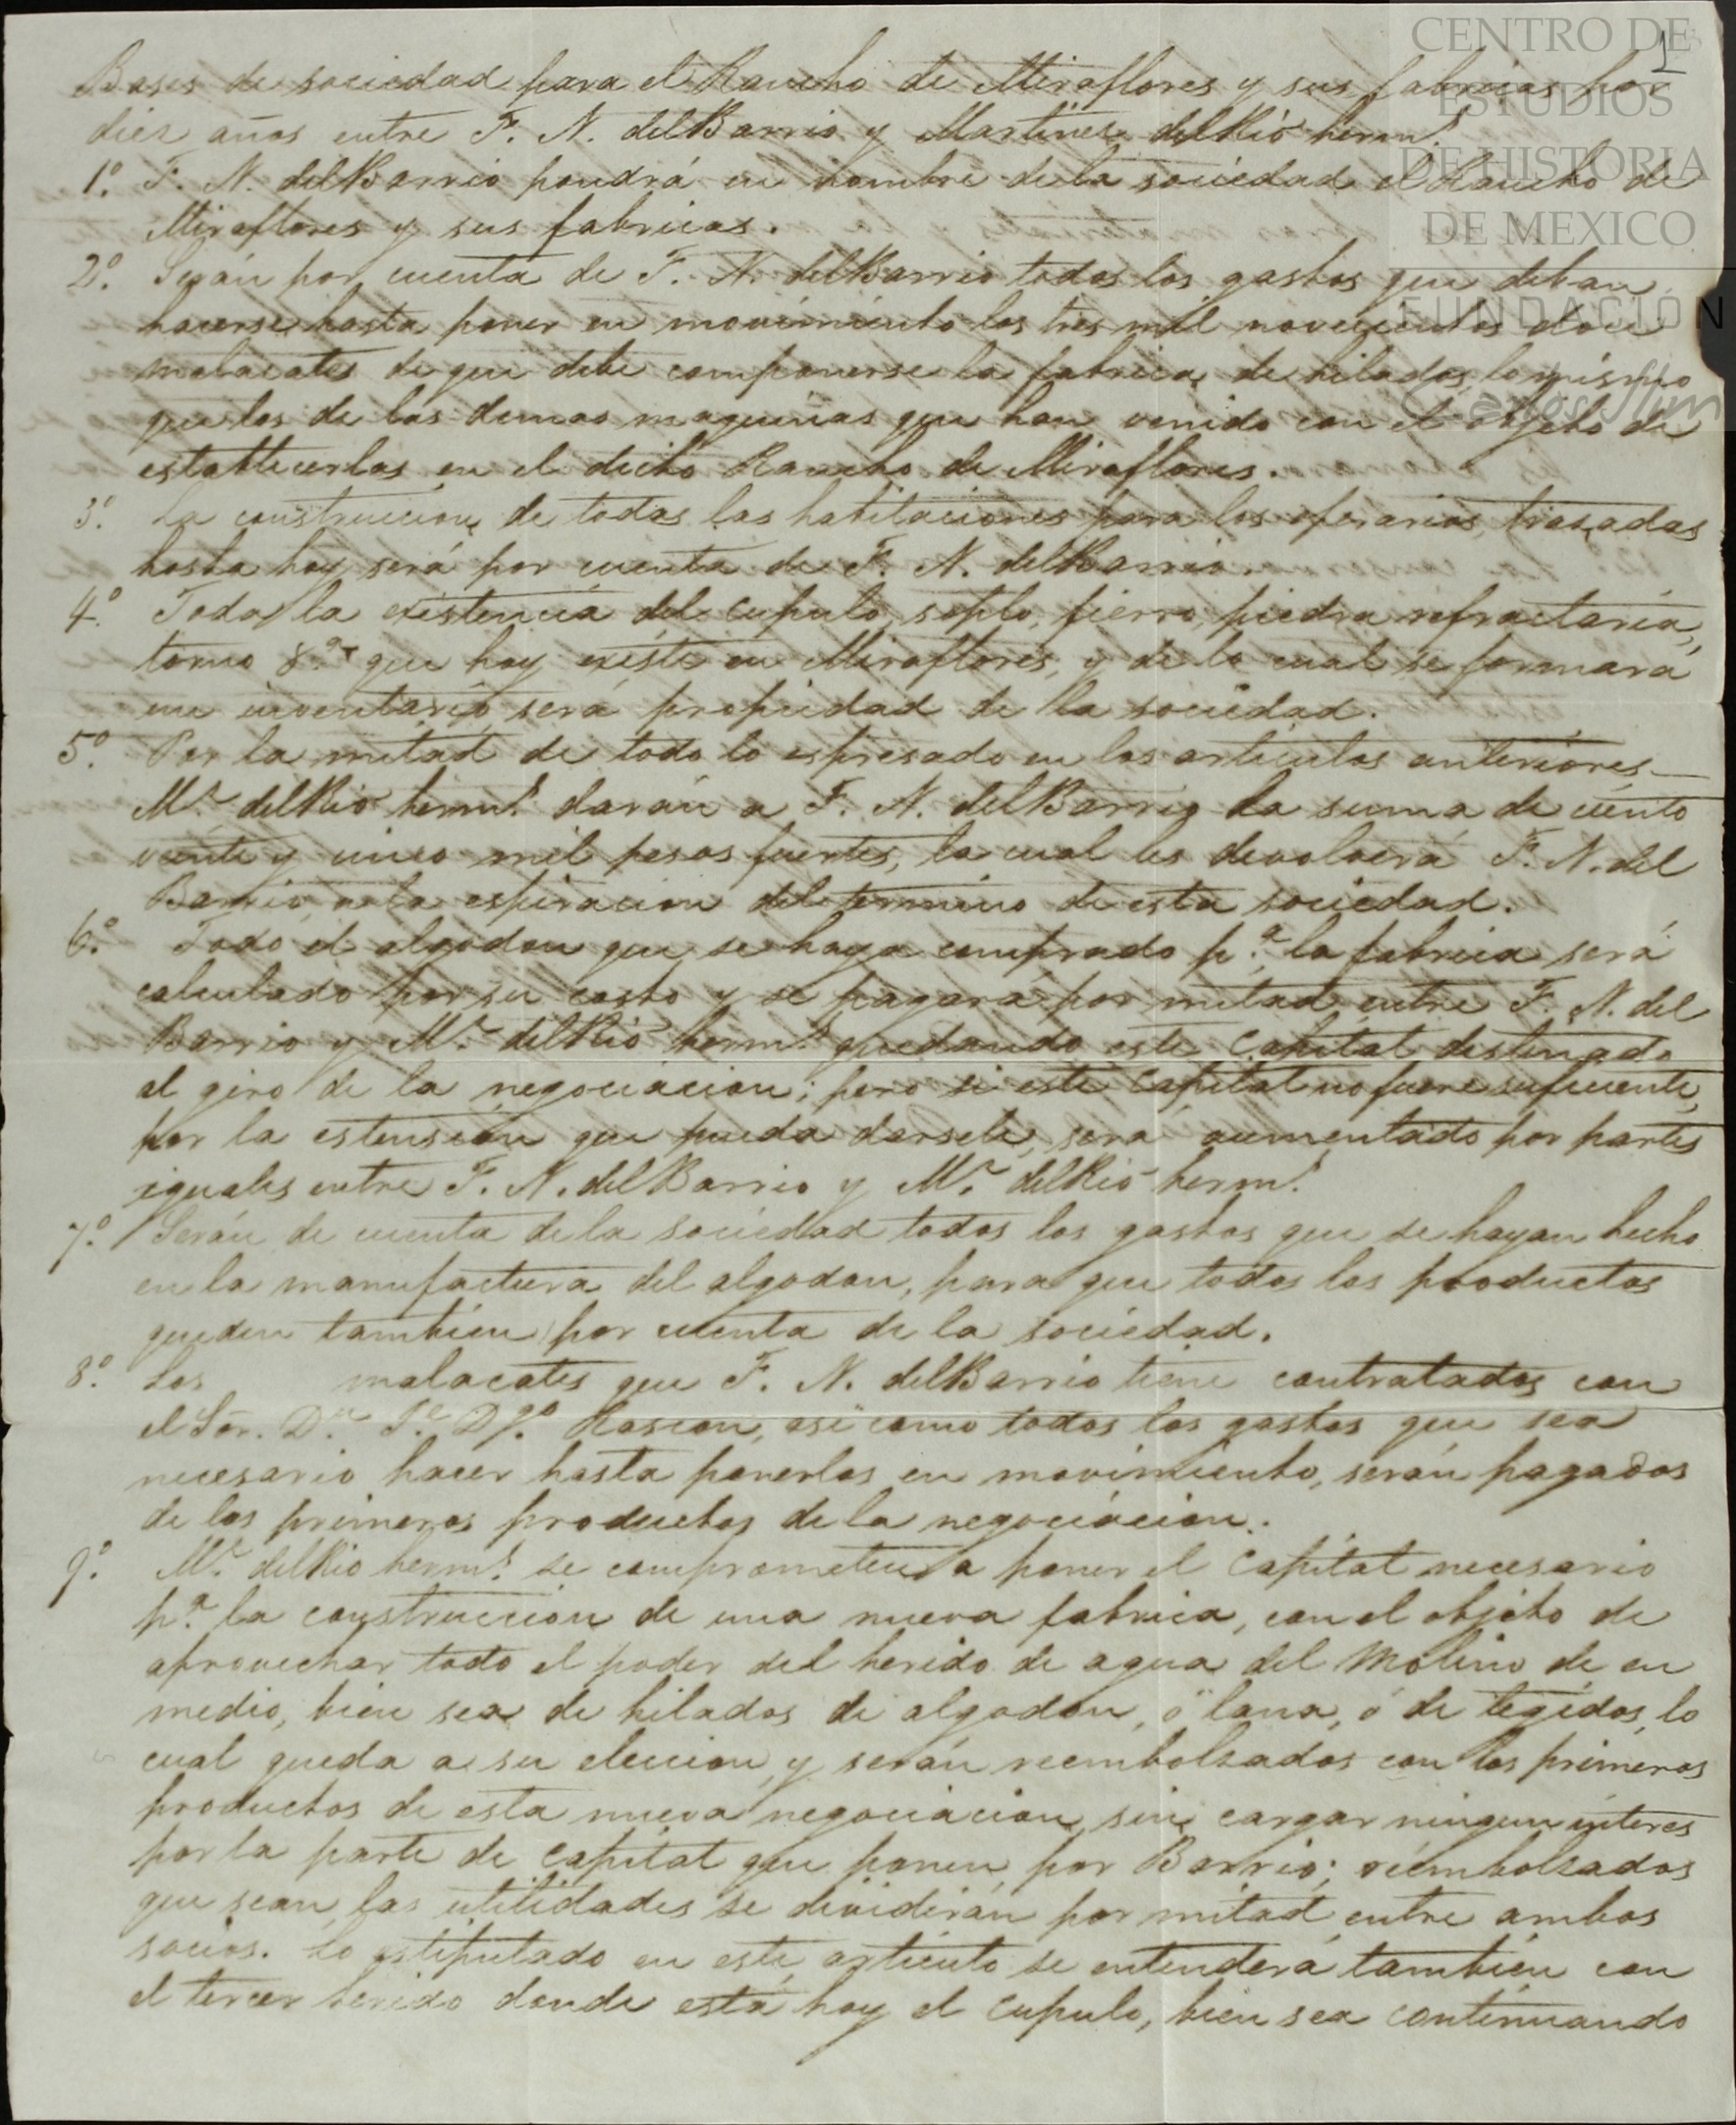 CENTRO DE
ESTUDIOS
DE HISTORIA
DE MEXICO
FUNDACIÓN
Carlos Slim
1
Bases de sociedad para el Rancho de Miraflores y sus fabricas por
diez años entre F. N. del Barrio y Martinez del Rio herm.s
1.º F. N. del Barrio pondrá en nombre de la sociedad el Rancho de
Miraflores y sus fabricas.
2.º Serán por cuenta de F. N. del Barrio todos los gastos que deban
hacerse hasta poner en movimiento los tres mil novecientos doce
malacates de que debe componerse la fabrica de hilados lo mismo
que los de las demas maquinas que han venido con el objeto de
establecerlas en el dicho Rancho de Miraflores.
3.º La construccion de todas las habitaciones para los operarios trazadas
hasta hoy será por cuenta de F. N. del Barrio.
4.º Toda la existencia del cupulo, soplo, fierro, piedra refractaria,
torno &.a que hoy existe en Miraflores, y de lo cual se formará
un inventario será propiedad de la sociedad.
5.º Por la mitad de todo lo espresado en los articulos anteriores
M.z del Rio herm.s darán a F. N. del Barrio la suma de ciento
veinte y cinco mil pesos fuertes, la cual les devolverá F. N. del
Barrio a la espiracion del termino de esta sociedad.
6.º Todo el algodon que se haya comprado p.a la fabrica será
calculado por su costo y se pagará por mitad entre F. N. del
Barrio y M.z del Rio herm.s quedando este capital destinado
al giro de la negociacion; pero si este capital no fuere suficiente,
por la estension que pueda darsele, será aumentado por partes
iguales entre F. N. del Barrio y M.z del Rio herm.s
7.º Serán de cuenta de la sociedad todos los gastos que se hayan hecho
en la manufactura del algodon, para que todos los productos
queden tambien por cuenta de la sociedad.
8.º Los malacates que F. N. del Barrio tiene contratados con
el Sor. D.n J.e Rascon, asi como todos los gastos que sea
necesario hacer hasta ponerlos en movimiento, serán pagados
de los primeros productos de la negociacion.
9.º M.z del Rio herm.s se comprometen a poner el capital necesario
p.a la construccion de una nueva fabrica, con el objeto de
aprovechar todo el poder del herido de agua del Molino de en
medio, bien sea de hilados de algodon, ó lana, ó de tegidos, lo
cual queda a su eleccion, y serán reembolsados con los primeros
productos de esta nueva negociacion, sin cargar ningun interes
por la parte de capital que ponen por Barrio; reembolsados
que sean las utilidades se dividirán por mitad entre ambos
socios. Lo estipulado en este articulo se entenderá tambien con
el tercer herido donde está hoy el cupulo, bien sea continuando